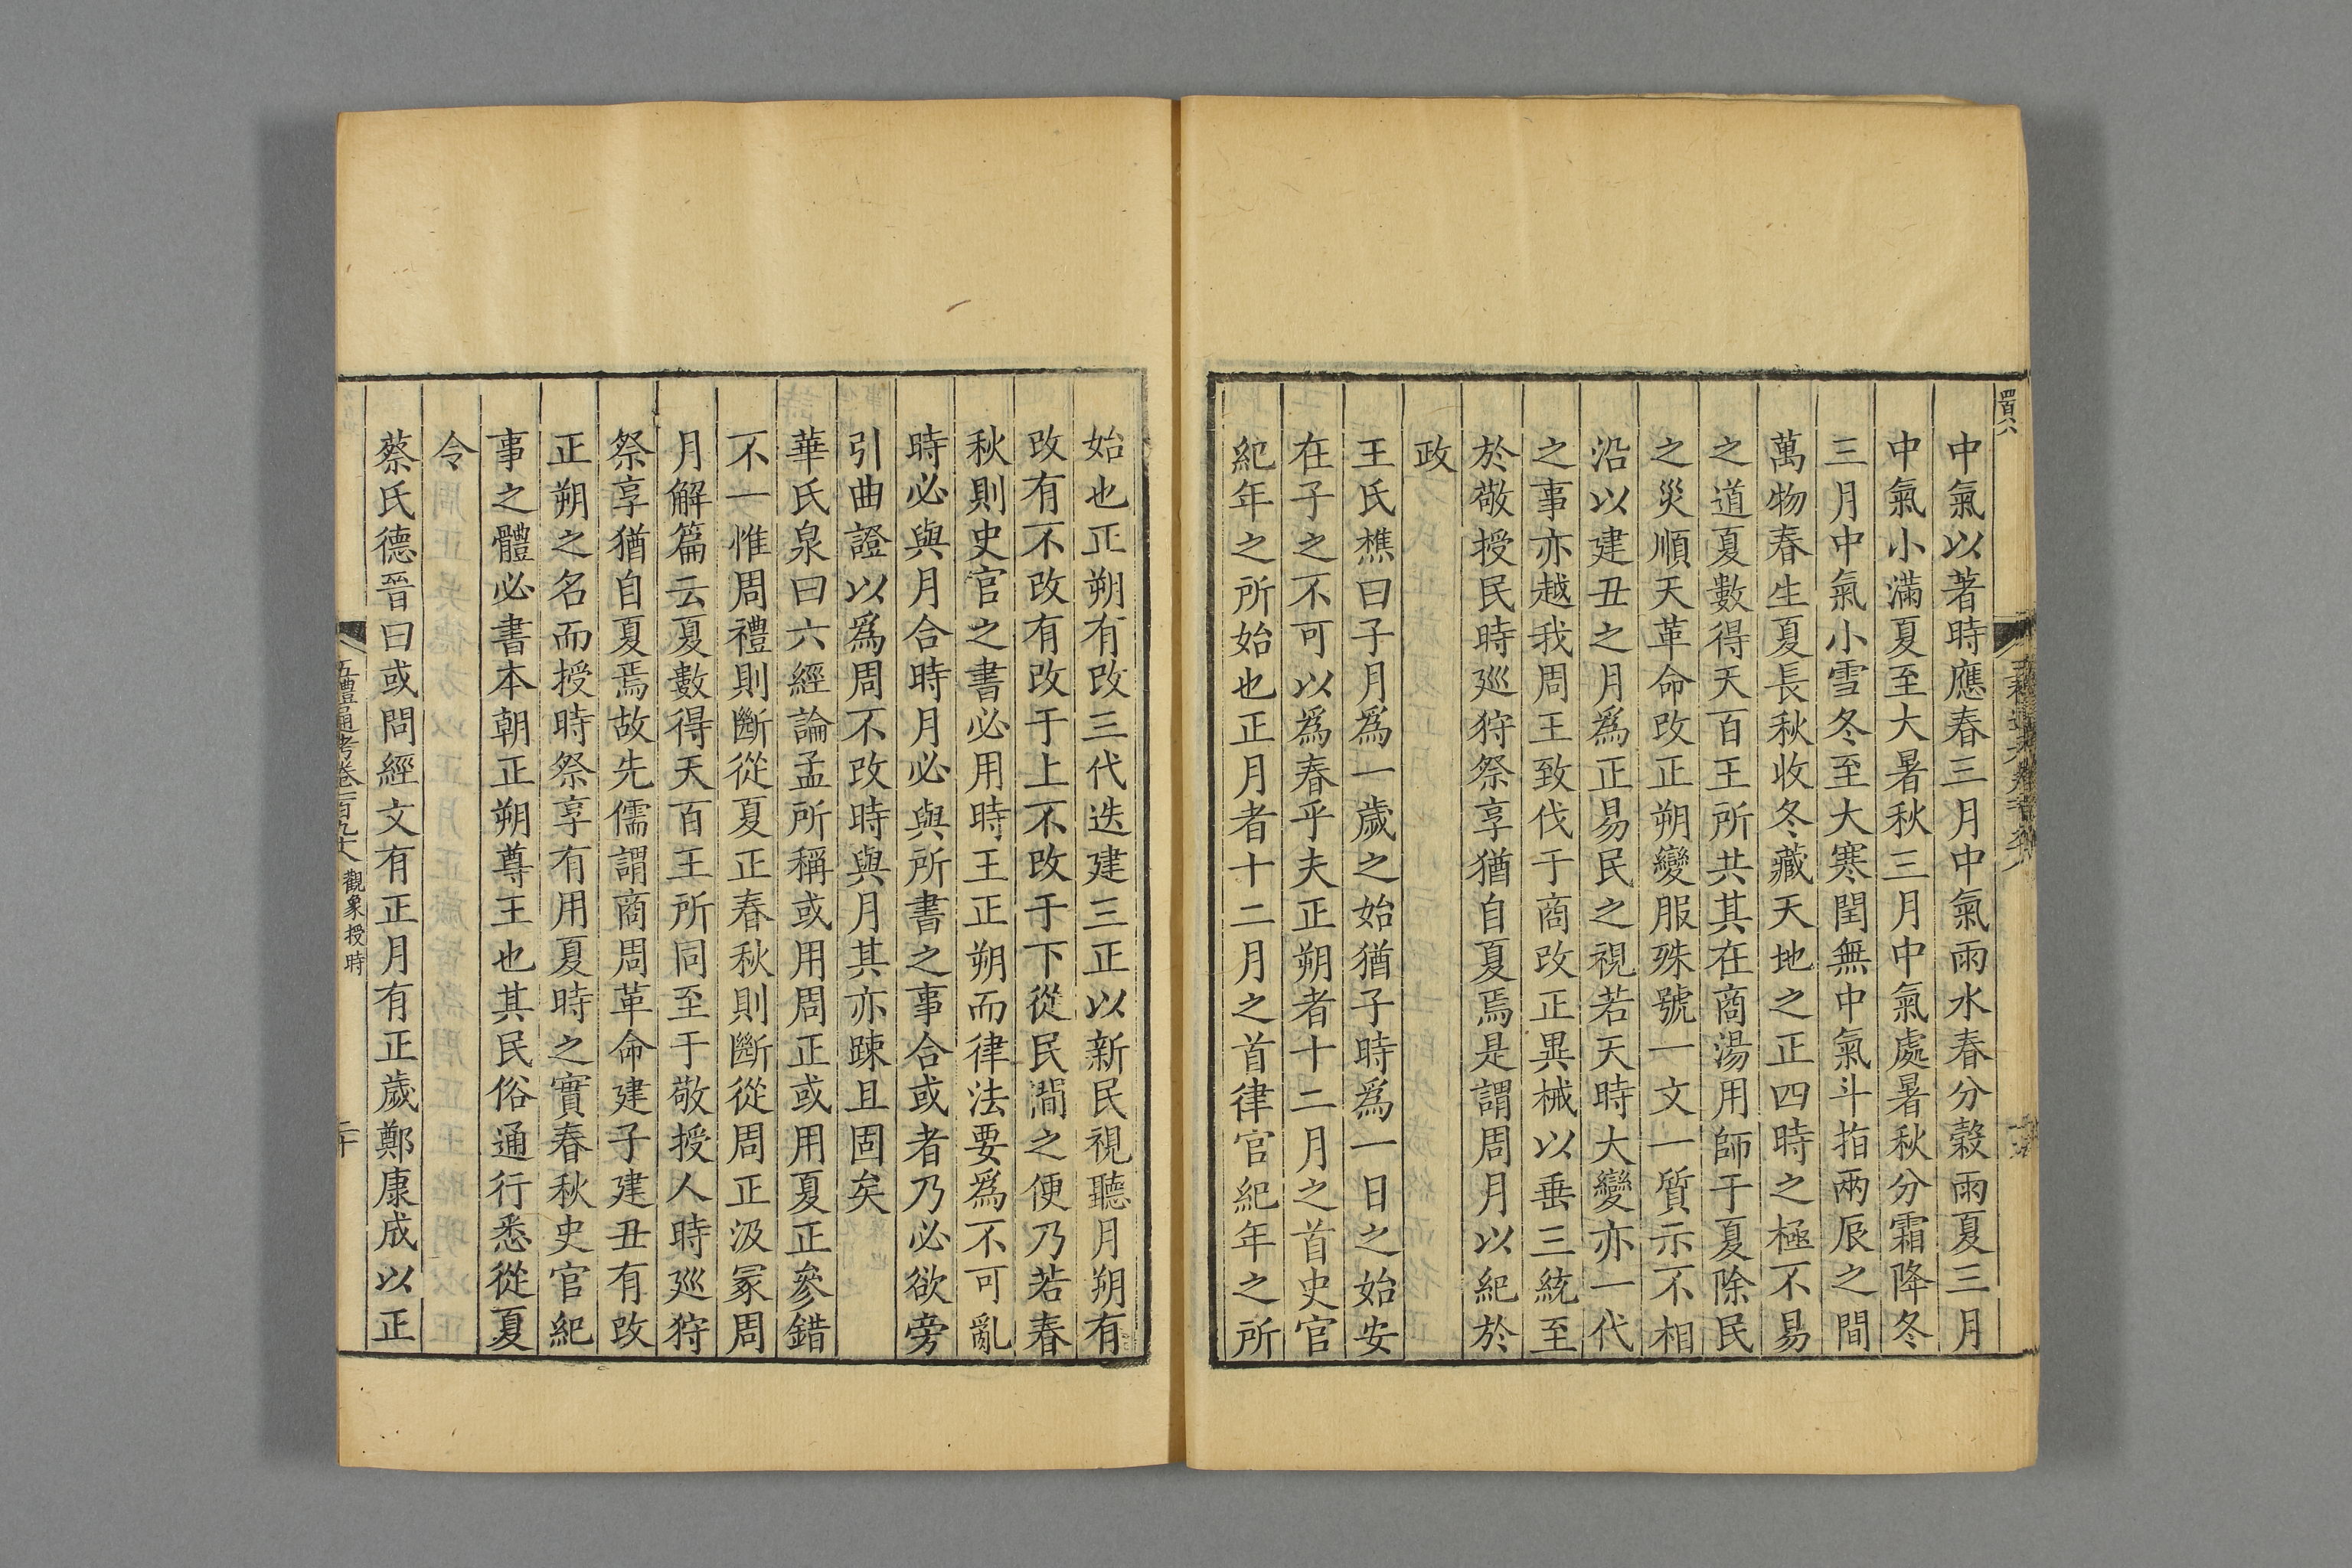 中氣以著時應春三月中氣雨水春分穀雨夏三月
中氣小滿夏至大暑秋三月中氣處暑秋分霜降冬
三月中氣小雪冬至大寒閏無中氣斗指兩辰之間
萬物春生夏長秋收冬藏天地之正四時之極不易
之道夏數得天百王所共其在商湯用師于夏除民
之災順天革命改正朔變服殊號一文一質示不相
沿以建丑之月爲正易民之視若天時大變亦一代
之事亦越我周王致伐于商改正異械以垂三統至
於敬授民時廵狩祭享猶自夏焉是謂周月以紀於
政
王氏樵曰子月爲一歲之始猶子時爲一日之始安
在子之不可以爲春乎夫正朔者十二月之首史官
紀年之所始也正月者十二月之首律官紀年之所
始也正朔有改三代迭建三正以新民視聽月朔有
改有不改有改于上不改于下從民間之便乃若春
秋則史官之書必用時王正朔而律法要爲不可亂
時必與月合時月必與所書之事合或者乃必欲旁
引曲證以爲周不改時與月其亦踈且固矣
華氏泉曰六經論孟所稱或用周正或用夏正參錯
不一惟周禮則斷從夏正春秋則斷從周正汲冢周
月解篇云夏數得天百王所同至于敬授人時廵狩
祭享猶自夏焉故先儒謂商周革命建子建丑有改
正朔之名而授時祭享有用夏時之實春秋史官紀
事之體必書本朝正朔尊王也其民俗通行悉從夏
令
蔡氏德晉曰或問經文有正月有正歲鄭康成以正
五禮通考卷一百九十八 觀象授時 二十